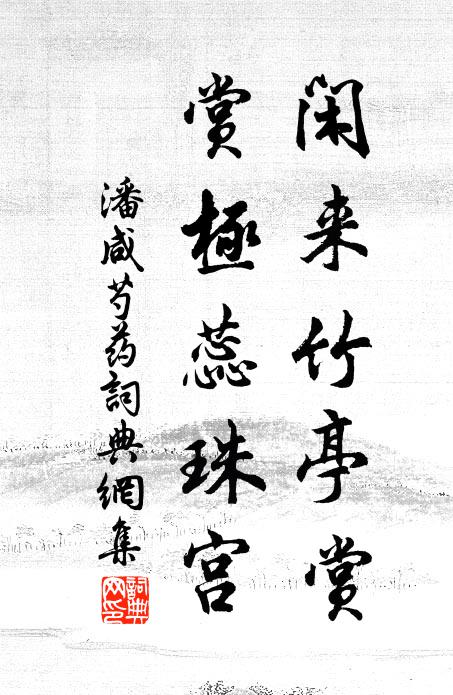 闲来竹亭赏
赏极蕊珠宫
潘咸芍药詞典網集
詞典网印